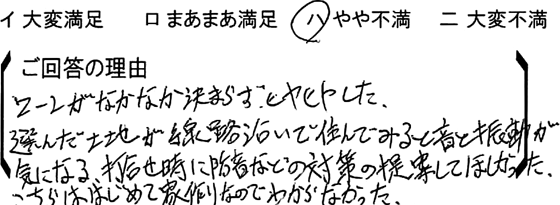 イ 大変満足 ロ まあまあ満足 ハ やや不満 ニ 大変不満
ご回答の理由
ローンがなかなか決まらずヒヤヒヤした、
選んだ土地が線路沿いで住んでみると音と振動が
気になる、打合せ時に防音などの対策の提案してほしかった、
こちらははじめて家作りなのでわからなかった。